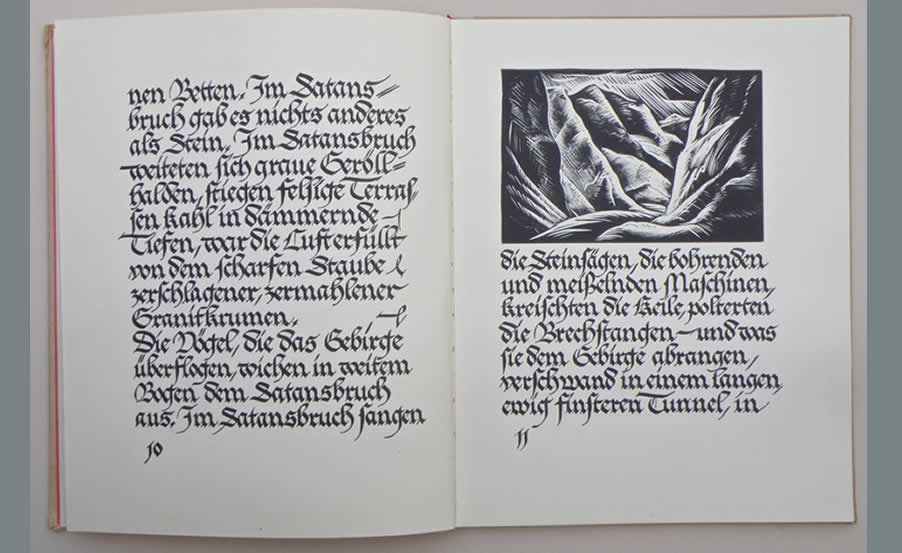 nen Betten. Im Satans=
bruch gab es nichts anderes
als Stein. Im Satansbruch
weiteten sich graue Geröll=
halden, stiegen felsige Terras-
sen kahl in dämmernde
Tiefen, war die Luft erfüllt
von dem scharfen Staube
zerschlagener, zermahlener
Granitkrumen.
Die Vögel, die das Gebirge
überflogen, wichen in weitem
Bogen dem Satansbruch
aus. Im Satansbruch sangen
10
die Steinsägen, die bohrenden
und meißelnden Maschinen,
kreischten die Keile, polterten
die Brechstangen — und was
sie dem Gebirge abrangen,
verschwand in einem langen,
ewig finsteren Tunnel, in
11